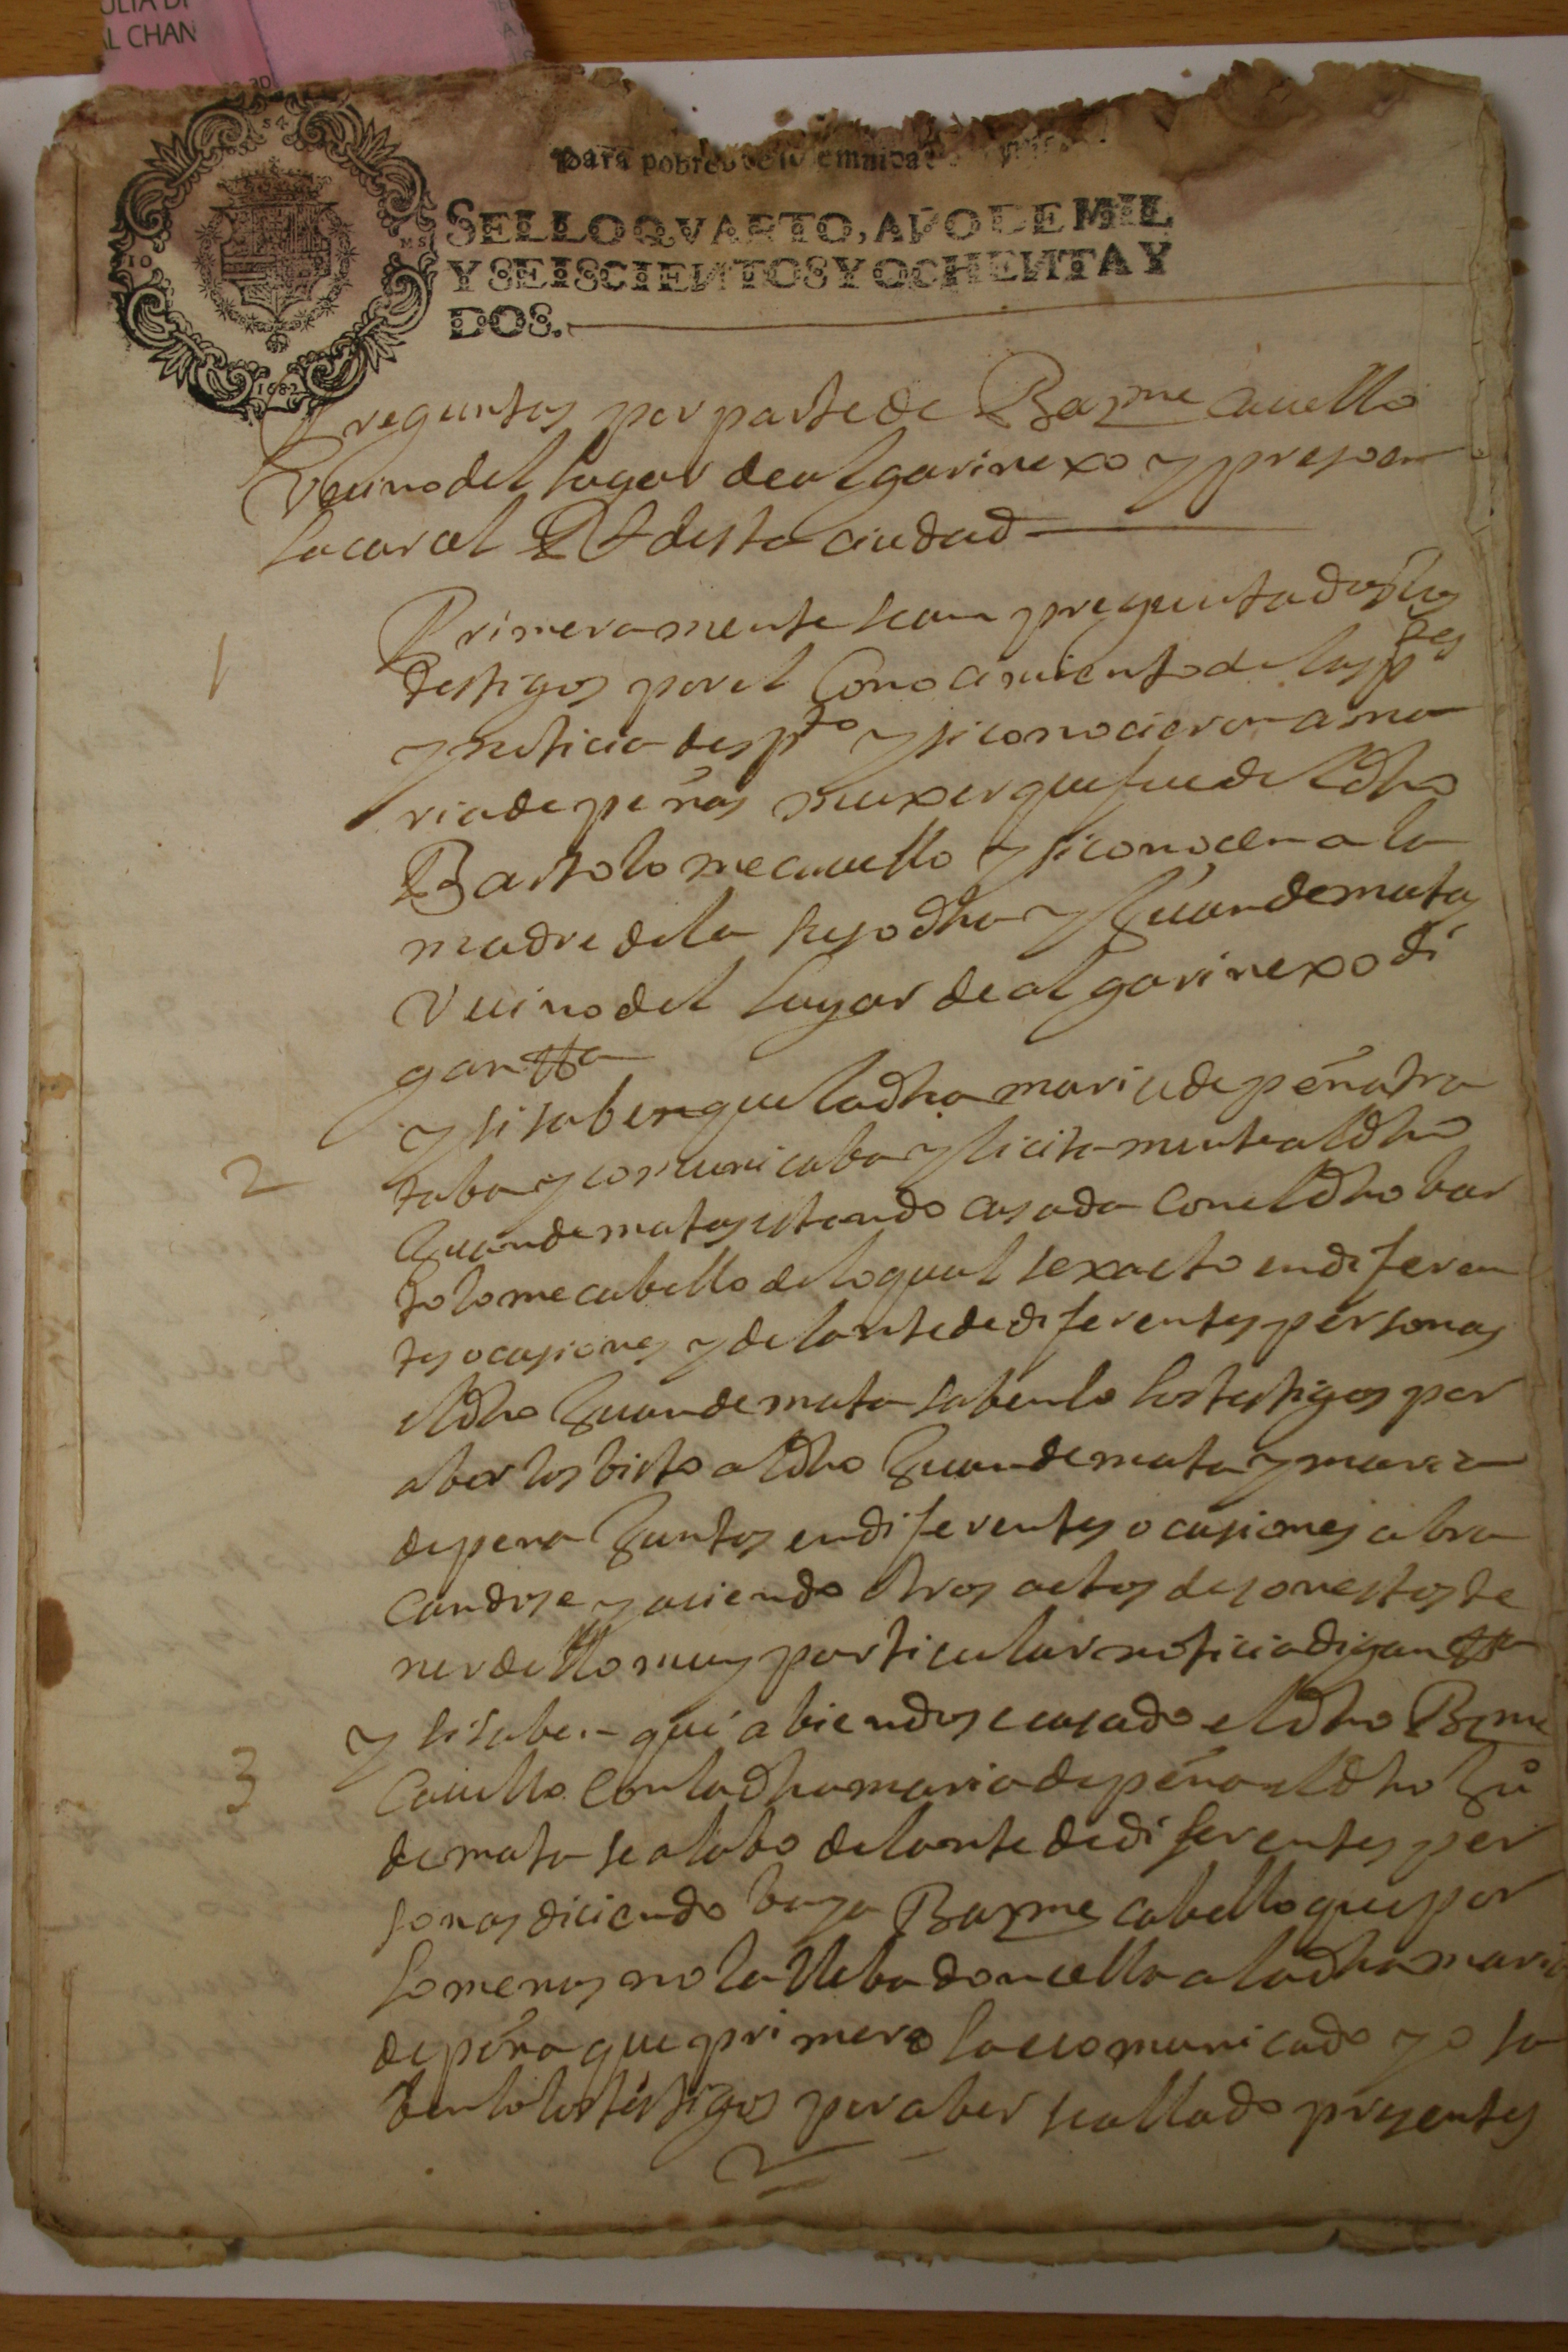 AL CHAN
para pobres
SELLO QVARTO, AÑO DE MIL
Y SEISCIENTOS Y OCHENTA Y
DOS.
1682
Preguntas por parte de Barme cauello
Vecino del lugar de algarinexo y
desta ciudad
1
Primeramente sean preguntados los
testigos por el Conocimiento de las ptes
y noticia des pto y si conocieron a ma
ria de peñas muxer que fue del dho
Bartolome cauello y si conocen a la
madre de la suso dha y Juan de matas
Vecino del lugar de algarinexo di
gan
2
y si saben que la dha maria de peña tra
taba y comunicaba ylicitamente al dho
Juan de matas estando casada con el dho bar
tolome cabello de lo qual se xacto en diferen
tes ocasiones y delante de diferentes personas
el dho Juan de mata saben lo los testigos por
aber los bisto al dho Juan de mata y maria
de pena Juntos en diferentes ocasiones abra
candose y aciendo otros actos desonestos te
ner dello muy particular noticia digan
3
y si saben que abiendose casado el dho Barme
Cauello con la dha maria de peña el dho Ju
de mata se alabo delante de diferentes per
sonas diciendo baya Barme cabello que por
lo menos no la lleba doncella a la dha maria
de peña que primero la e comunicado yo sa
ben lo los testigos por aber se allado presentes